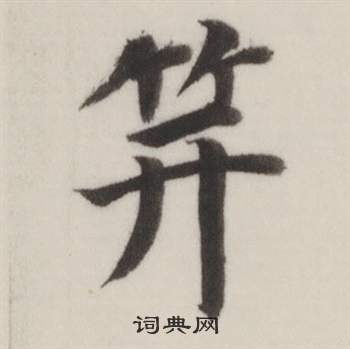 笄
词典网